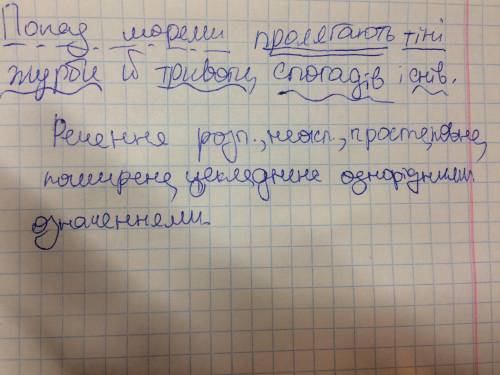 Понад морями пролягають тіні
журби й тривоги, спогадів і снів.
Речення розп., неокл., просте, повне,
поширене, ускладнене однорідними
означеннями.